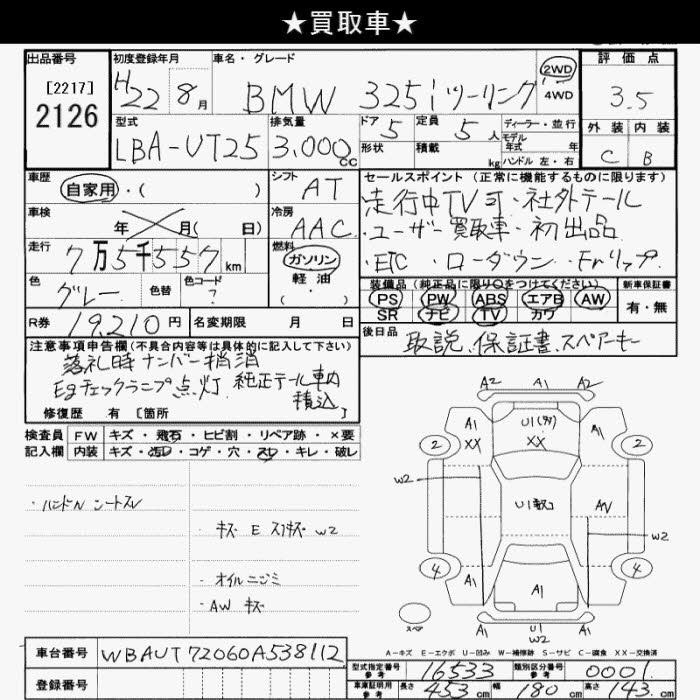 ★買取車★
出品番号 初度登録年月 車名・グレード 評価点
[2217]
2126
H22 8月 BMW 325iツーリング 2WD 4WD 3.5
型式 排気量 ドア 定員 ディーラー・並行 外装 内装
LBA-UT25 3,000cc 5 5人 モデル年式 年
形状 積載 kg ハンドル 左・右 C B
車歴 シフト セールスポイント(正常に機能するものに限ります)
自家用・( ) AT 走行中TV可・社外テール
車検 冷房 ・ユーザー買取車・初出品
年 月( 日) AAC ・ETC・ローダウン・Frリップ
走行 燃料
7万5千557km ガソリン
軽油
・
色 色替 色コード 装備品(純正品に限り○をつけてください) 新車保証書
グレー ? PS PW ABS エアB AW 有・無
SR ナビ TV カワ
R券 19,210円 名変期限 月 日 後日品
取説、保証書、スペアーキー
注意事項申告欄(不具合内容等は具体的に記入して下さい)
落札時ナンバー抹消
Egチェックランプ点灯 純正テール車内
積込
修復歴 有 [箇所 ]
検査員 FW キズ・飛石・ヒビ割・リペア跡・×要
記入欄 内装 キズ・汚レ・コゲ・穴・スレ・キレ・破レ
・ハンドル シートスレ
・キズ E スリキズ W2
・オイルニジミ
・AW キズ
A2 A1 A2
A1 U1(タ) A1
XX XX
2 2
W2
U1 A1
W2
4 4
A1 A1 A1
スペア U1
W2
A-キズ E-エクボ U-凹み W-補修跡 S-サビ C-腐食 XX-交換済
車台番号 WBAUT72060A538112
型式指定番号 参考 16533 類別区分番号 参考 0001
登録番号 車庫証明用 参考 長さ 453cm 幅 180cm 高さ 143cm